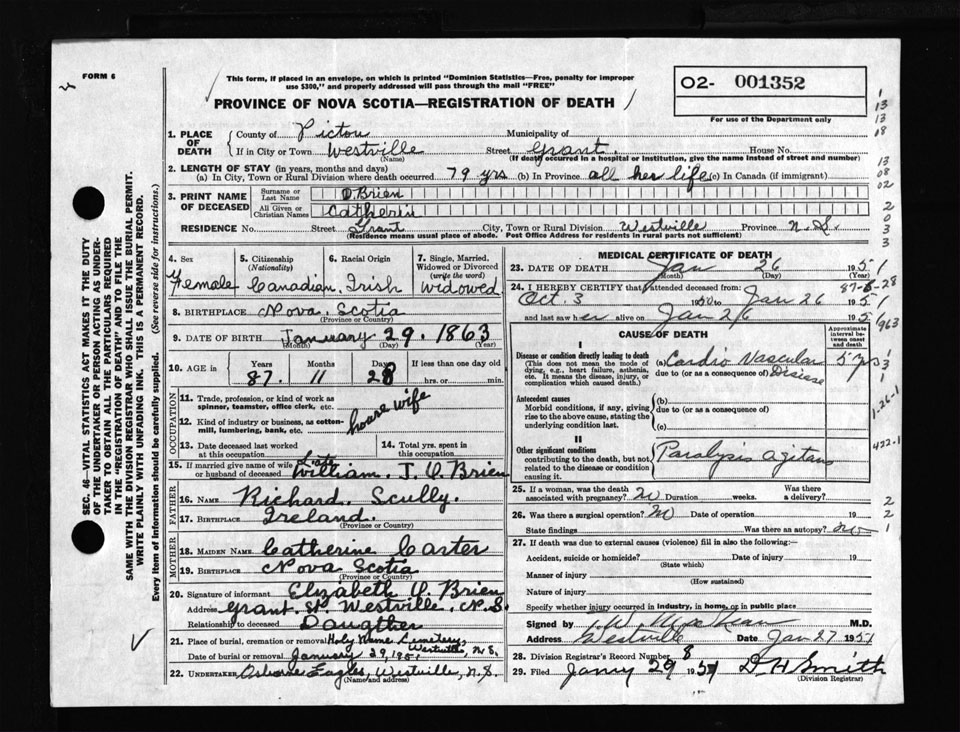 FORM 6
This form, if placed in an envelope, on which is printed "Dominion Statistics—Free, penalty for improper
use $300," and properly addressed will pass through the mail "FREE"
PROVINCE OF NOVA SCOTIA—REGISTRATION OF DEATH
O2- 001352
For use of the Department only
1. PLACE OF DEATH
County of Pictou Municipality of
If in City or Town Westville Street Grant. House No.
(Name) (If death occurred in a hospital or institution, give the name instead of street and number)
2. LENGTH OF STAY (in years, months and days)
(a) In City, Town or Rural Division where death occurred 79 yrs (b) In Province all her life (c) In Canada (if immigrant)
3. PRINT NAME OF DECEASED
Surname or Last Name O'Brien
All Given or Christian Names Catherin
RESIDENCE No. Street Grant City, Town or Rural Division Westville Province N.S.
(Residence means usual place of abode. Post Office Address for residents in rural parts not sufficient)
4. Sex Female
5. Citizenship (Nationality) Canadian
6. Racial Origin Irish
7. Single, Married, Widowed or Divorced (write the word) Widowed
8. BIRTHPLACE Nova Scotia
(Province or Country)
9. DATE OF BIRTH January 29. 1863
(Month) (Day) (Year)
10. AGE in Years 87. Months 11 Days 28 If less than one day old
hrs. or min.
OCCUPATION
11. Trade, profession, or kind of work as spinner, teamster, office clerk, etc. house wife
12. Kind of industry or business, as cotton-mill, lumbering, bank, etc.
13. Date deceased last worked at this occupation
14. Total yrs. spent in this occupation
15. If married give name of wife or husband of deceased Late William. J. O'Brien
FATHER
16. NAME Richard. Scully.
17. BIRTHPLACE Ireland.
(Province or Country)
MOTHER
18. MAIDEN NAME Catherine Carter
19. BIRTHPLACE Nova Scotia
(Province or Country)
20. Signature of informant Elizabeth O'Brien
Address Grant. St. Westville, N.S.
Relationship to deceased Daugther
21. Place of burial, cremation or removal Holy Name Cemetery, Westville, N.S.
Date of burial or removal January 29, 1951
22. UNDERTAKER Osborne Eagles, Westville, N.S.
(Name and address)
MEDICAL CERTIFICATE OF DEATH
23. DATE OF DEATH Jan 26 1951
(Month) (Day) (Year)
24. I HEREBY CERTIFY that I attended deceased from:
Oct. 3 1950 to Jan 26 1951
and last saw her alive on Jan 26 1951
CAUSE OF DEATH
Approximate interval between onset and death
I
Disease or condition directly leading to death
(This does not mean the mode of dying, e.g., heart failure, asthenia, etc. It means the disease, injury, or complication which caused death.)
(a) Cardio Vascular Disiese 5 yrs
due to (or as a consequence of)
Antecedent causes
Morbid conditions, if any, giving rise to the above cause, stating the underlying condition last.
(b)
due to (or as a consequence of)
(c)
II
Other significant conditions
contributing to the death, but not related to the disease or condition causing it.
Paralysis agitans
25. If a woman, was the death associated with pregnancy? N Duration weeks. Was there a delivery?
26. Was there a surgical operation? N Date of operation 19
State findings Was there an autopsy? no
27. If death was due to external causes (violence) fill in also the following:—
Accident, suicide or homicide? Date of injury 19
(State which)
Manner of injury
(How sustained)
Nature of injury
Specify whether injury occurred in industry, in home, or in public place
Signed by M.D.
Address Westville Date Jan 27 1951
28. Division Registrar's Record Number 8
29. Filed Janry 29 1951 D H Smith
(Division Registrar)
SEC. 46—VITAL STATISTICS ACT MAKES IT THE DUTY
OF THE UNDERTAKER OR PERSON ACTING AS UNDER-
TAKER TO OBTAIN ALL THE PARTICULARS REQUIRED
IN THE "REGISTRATION OF DEATH" AND TO FILE THE
SAME WITH THE DIVISION REGISTRAR WHO SHALL ISSUE THE BURIAL PERMIT.
WRITE PLAINLY WITH UNFADING INK. THIS IS A PERMANENT RECORD.
Every item of information should be carefully supplied. (See reverse side for instructions.)
1
13
13
08
13
08
02
2
0
3
3
87-5-28
963
1
3
1
1-26-1
422-1
2
2
1